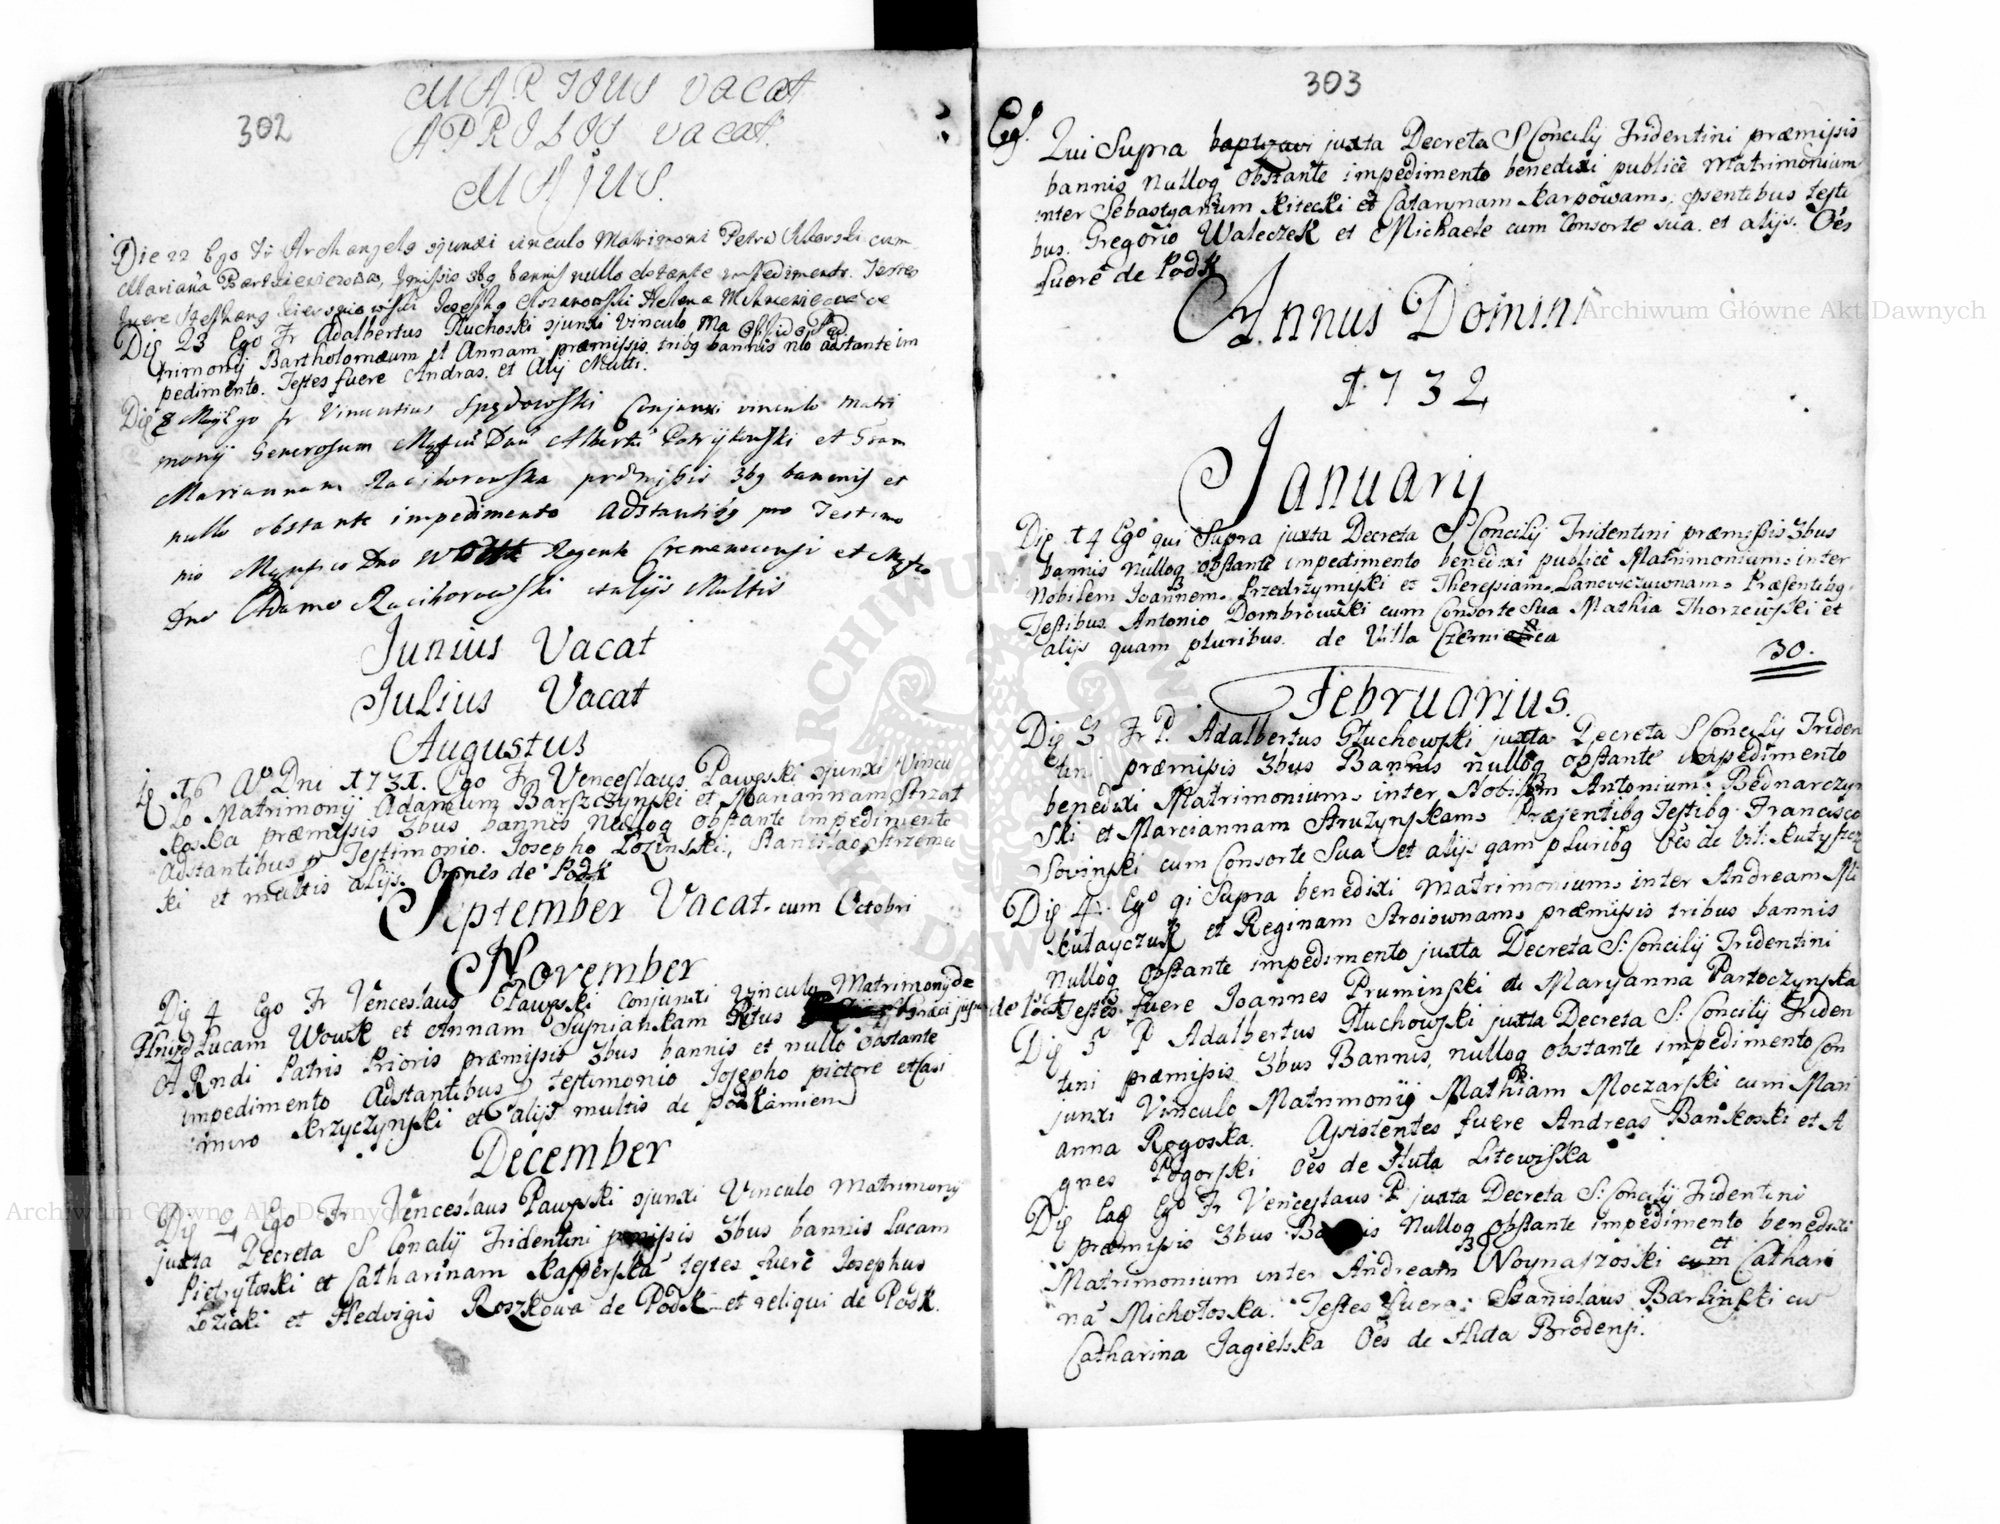 302
MARTIUS vacat
APRILIS vacat.
MAJUS.
Die 22 Ego Fr Archangelo cjunxi vinculo Matrimoni Petru cum
Mariana, pmissis 3bg bannis nullo obstante impedimento. Testes
fuere Josephg Helena
Die 23 Ego Fr Adalbertus Gluchoski cjunxi vinculo Ma
trimonij Bartholomæum et Annam præmissis tribg bannis nlo adstante im
pedimento. Testes fuere Andras. et Alij Multi.
Die 8 Maij Ego fr Vincentius Spędowski Conjunxi vinculo matri
monij Generosum Dnu Albertu et Gram
Mariannam Raciborowska præmissis 3bg bannis et
nullo obstante impedimento Adstantibg pro Testimo
nio Magnifico Dno Regente Cremenecensi et
Dno Adamo Raciborowski et alijs Multis
Junius Vacat
Julius Vacat
Augustus
16 Ao Dni 1731. Ego Fr Venceslaus Pawęski cjunxi Vincu
lo Matrimonij Adamum Barszczynski et Mariannam Strzał
koska præmissis 3bus bannis Nullog obstante impedimento
Adstantibus p Testimonio. Josepho Lozinski, Stanislao Strzemec
ki et multis alijs. Omnes de Podk
September Vacat. cum Octobri
November
Die 4 Ego Fr Venceslaus Pawęski Conjunxi vinculo Matrimonij de
Hnyd Lucam Wowk et Annam Sysniankam Ritus Græci jussu
Or Rndi Patris Prioris præmissis 3bus bannis et nullo obstante
impedimento Adstantibus p testimonio Josepho pictore et Casi
miro Krzyczynski et alijs multis de podkamien
December
Die Ego Fr Venceslaus Pawęski cjunxi Vinculo Matrimonij
juxta Decreta S Concilij Tridentini pmissis 3bus bannis Lucam
Pietrytoski et Catharinam Kasperska testes fuere Josephus
Loziński et Hedvigis Roszkowa de Podk et reliqui de Podk.
303
Ego.
Qui Supra baptizavi juxta Decreta S Concilij Tridentini præmissis
bannis Nullog Obstante impedimento benedixi publice Matrimonium
inter Sebastyanum Kitecki et Catarynam Karpowam, psentibus testi
bus. Gregorio Waleczek et Michaele cum Consorte sua. et alijs. Oes
fuere de Podk
Annus Domini
1732
Januarij
Die 14 Ego qui Supra juxta Decreta S Concilij Tridentini præmissis 3bus
bannis Nullog obstante impedimento benedixi publice Matrimonium inter
Nobilem Joannem Przedrzymiski et Theresiam Lanevicżuwnam Præsentibg
Testibus Antonio Dombrowski cum Consorte Sua Mathia Thorzewski et
alijs quam pluribus. de Villa
30.
Februarius.
Die 3 Fr P. Adalbertus Głuchowski juxta Decreta S Concilij Triden
tini præmissis 3bus Bannis nullog obstante impedimento
benedixi Matrimonium inter Nobilem Antonium Bednarczyn
ski et Marciannam Struzynskam Præsentibg Testibg Francisco
Sovinski cum Consorte Sua et alijs qam pluribg Oes de Vil:
Die 4 Ego qi Supra benedixi Matrimonium inter Andream Mi
kulayczuk et Reginam Stroiownam præmissis tribus bannis
Nullog Obstante impedimento juxta Decreta S. Concilij Tridentini
de Pod Testes fuere Joannes Pruminski de Maryanna Partoczynska
Die 5 P Adalbertus Głuchowski juxta Decreta S. Concilij Triden
tini præmissis 3bus Bannis, nullog obstante impedimento Con
junxi Vinculo Matrimonij Mathiam Moczarski cum Mari
anna Rogoska. Assistentes fuere Andreas Bankoski et A
gnes Pogorski Oes de Huta Litowiska
Die Eadē Ego Fr Venceslaus P juxta Decreta S. Concilij Tridentini
præmissis 3bus Bannis Nullog obstante impedimento benedixi
Matrimonium inter Andream Woynaszoski cum et Cathari
na Michołoska. Testes fuere. Stanislaus Barlinski cu
Catharina Jagielska Oes de Huta Brodensi.
Archiwum Główne Akt Dawnych
Archiwum Główne Akt Dawnych